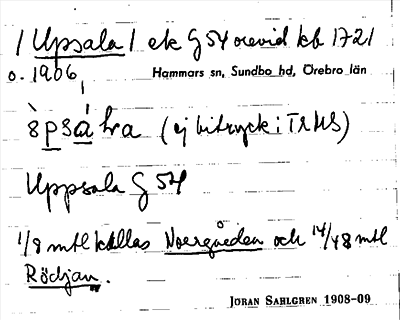 /Upsala/ ek G 54 orevid kb 1721
o. 1906,
Hammars sn, Sundbo hd, Örebro län
(ej bitryck i TRHS)
Uppsala G 54
1/8 mtl kallas Noergården och 14/48 mtl
Rödjan.
JÖRAN SAHLGREN 1908-09